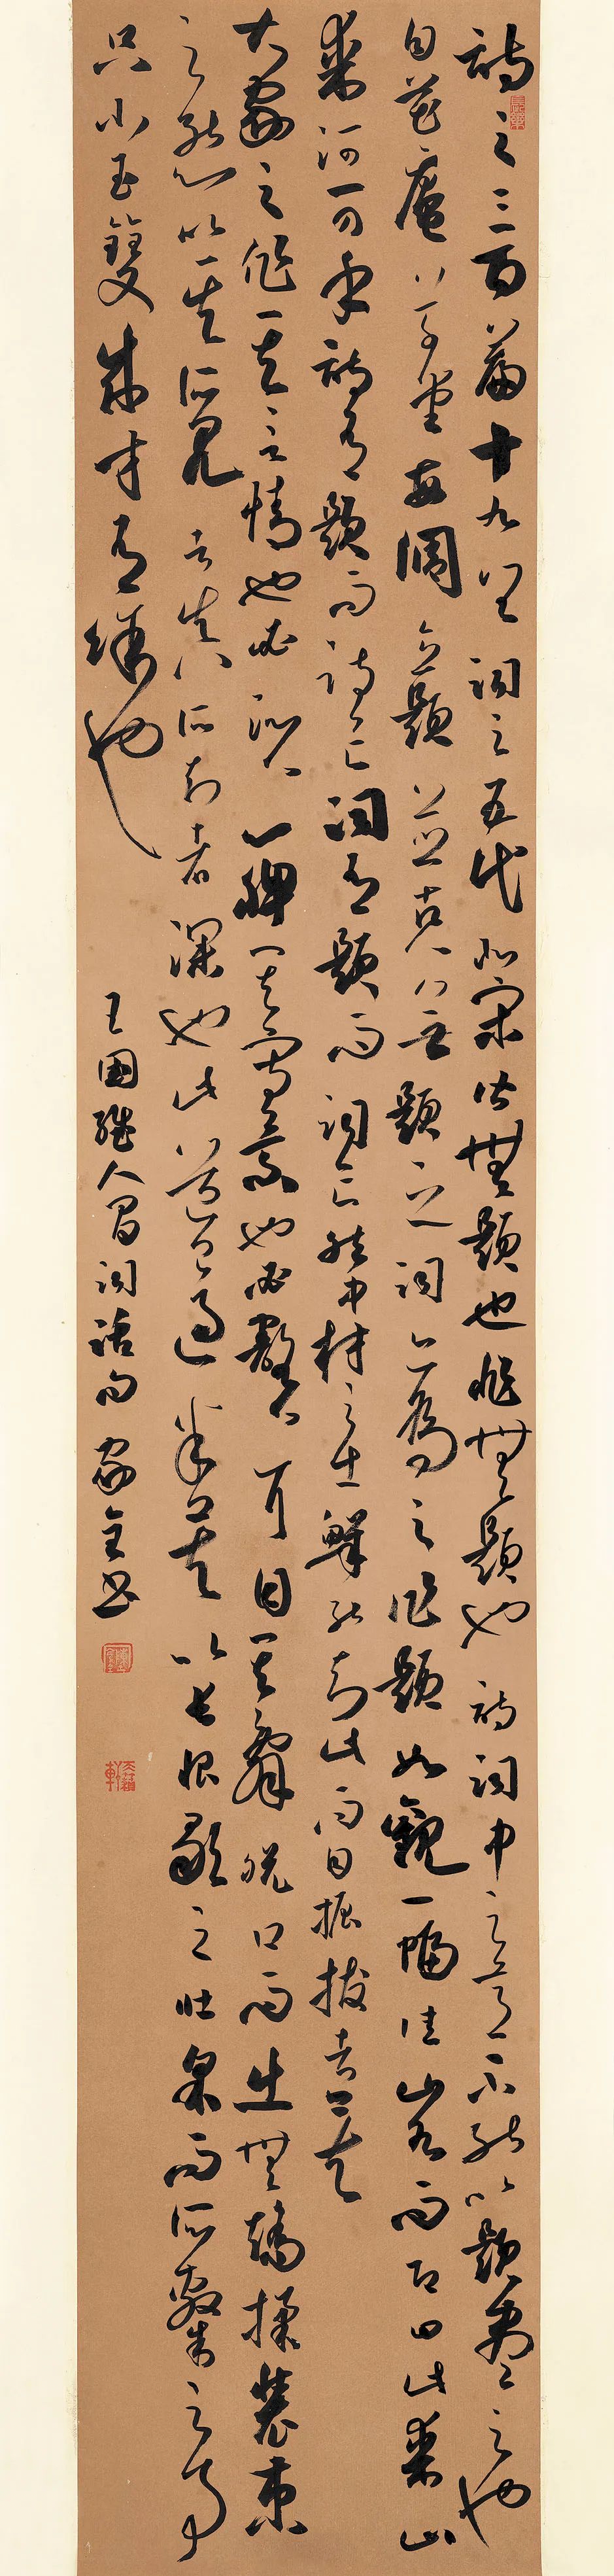 詩之三百篇十九首詞之五代北宋皆無題也非無題也詩詞中之意不能以題盡之也
自花庵草堂每調立題並古人無題之詞亦為之作題如觀一幅佳山水而即曰此某山
某河可乎詩有題而詩亡詞有題而詞亡然中材之士鮮能知此而自振拔者矣
大家之作其言情也必沁人心脾其寫景也必豁人耳目其辭脫口而出無矯揉裝束
之態以其所見者真所知者深也此道過半矣以長恨歌之壯采而所隸之事
只小玉雙成才有餘也
王國維人間詞話句 家全書